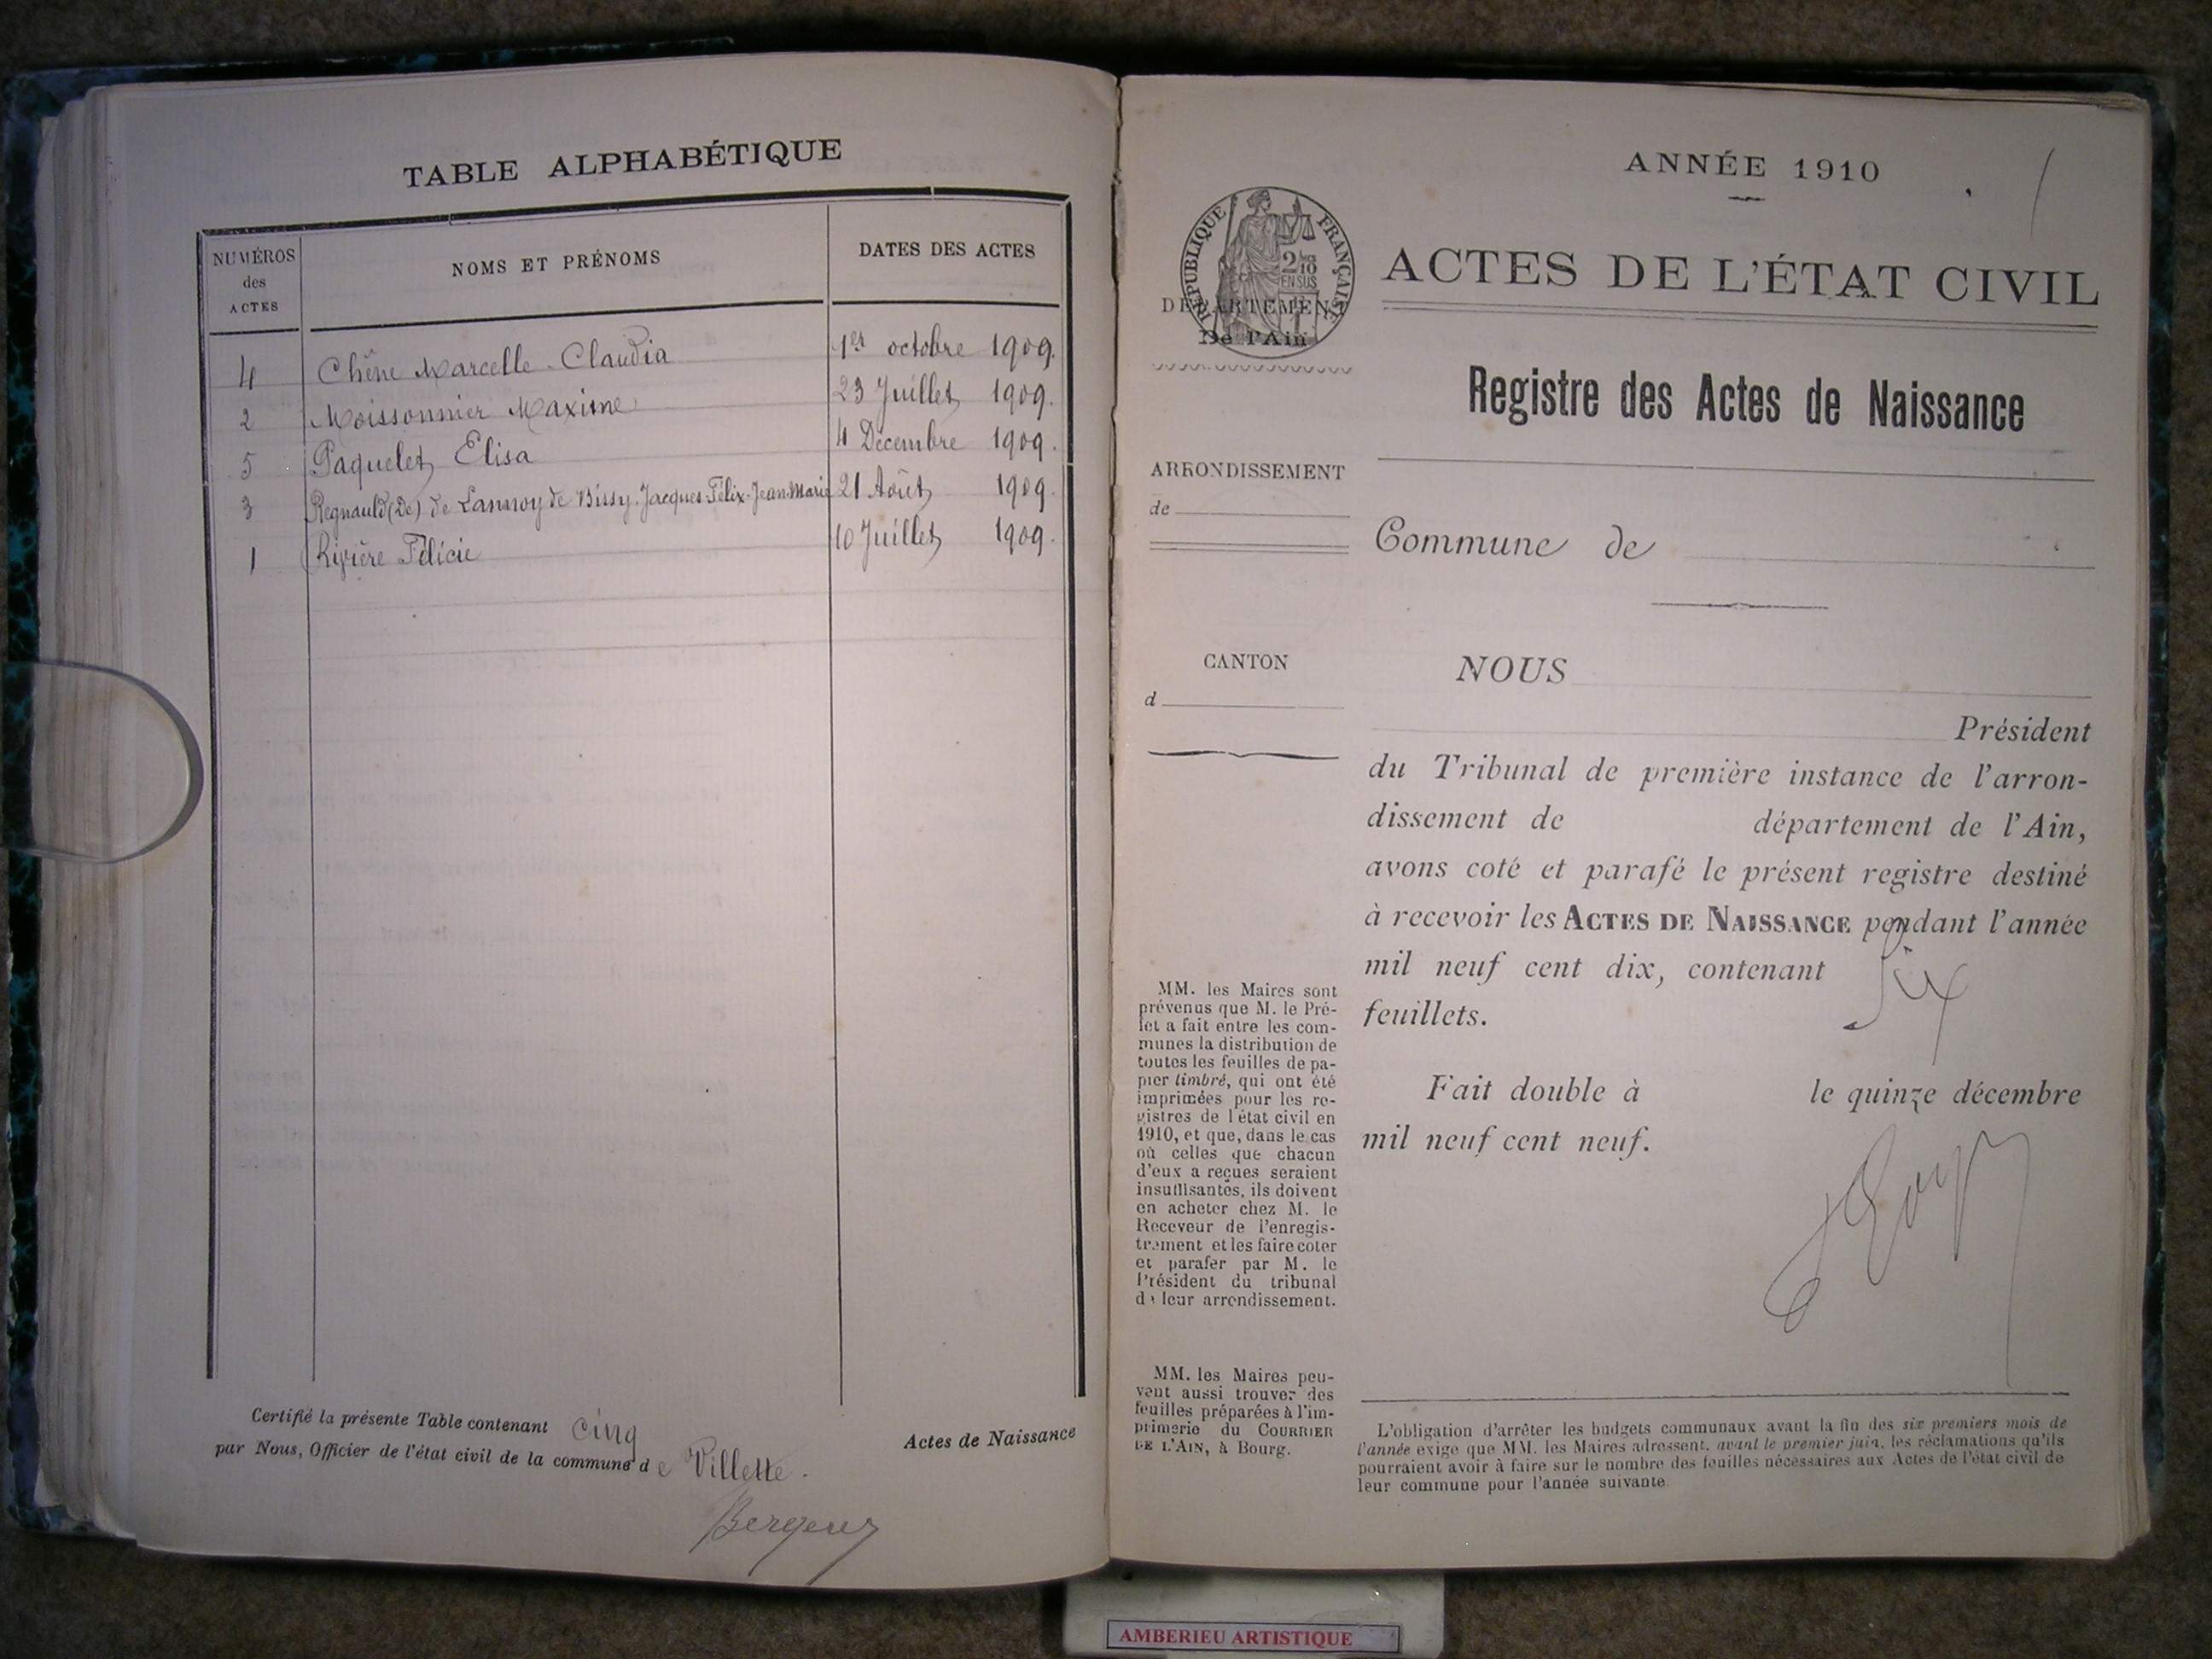 TABLE ALPHABÉTIQUE
NUMÉROS des ACTES
NOMS ET PRÉNOMS
DATES DES ACTES
4 Chêne Marcelle Claudia 1er octobre 1909.
2 Moissonnier Maxime 23 Juillet 1909.
5 Paquelet Elisa 4 Décembre 1909.
3 Regnauld (De) de Lannoy de Bissy. Jacques-Félix-Jean-Marie 21 Août 1909.
1 Rivière Félicie 10 Juillet 1909.
Certifié la présente Table contenant cinq Actes de Naissance
par Nous, Officier de l'état civil de la commune de Villette.
ANNÉE 1910
RÉPUBLIQUE FRANÇAISE
2/10
EN SUS
DÉPARTEMENT
De l'Ain
ACTES DE L'ÉTAT CIVIL
Registre des Actes de Naissance
ARRONDISSEMENT
de
Commune de
CANTON
d
NOUS
Président
du Tribunal de première instance de l'arron-
dissement de département de l'Ain,
avons coté et parafé le présent registre destiné
à recevoir les ACTES DE NAISSANCE pendant l'année
mil neuf cent dix, contenant Six
feuillets.
Fait double à le quinze décembre
mil neuf cent neuf.
MM. les Maires sont
prévenus que M. le Pré-
fet a fait entre les com-
munes la distribution de
toutes les feuilles de pa-
pier timbré, qui ont été
imprimées pour les re-
gistres de l'état civil en
1910, et que, dans le cas
où celles que chacun
d'eux a reçues seraient
insuffisantes, ils doivent
en acheter chez M. le
Receveur de l'enregis-
trement et les faire coter
et parafer par M. le
Président du tribunal
de leur arrondissement.
MM. les Maires peu-
vent aussi trouver des
feuilles préparées à l'im-
primerie du COURRIER
DE L'AIN, à Bourg.
L'obligation d'arrêter les budgets communaux avant la fin des six premiers mois de
l'année exige que MM. les Maires adressent, avant le premier juin, les réclamations qu'ils
pourraient avoir à faire sur le nombre des feuilles nécessaires aux Actes de l'état civil de
leur commune pour l'année suivante.
AMBERIEU ARTISTIQUE